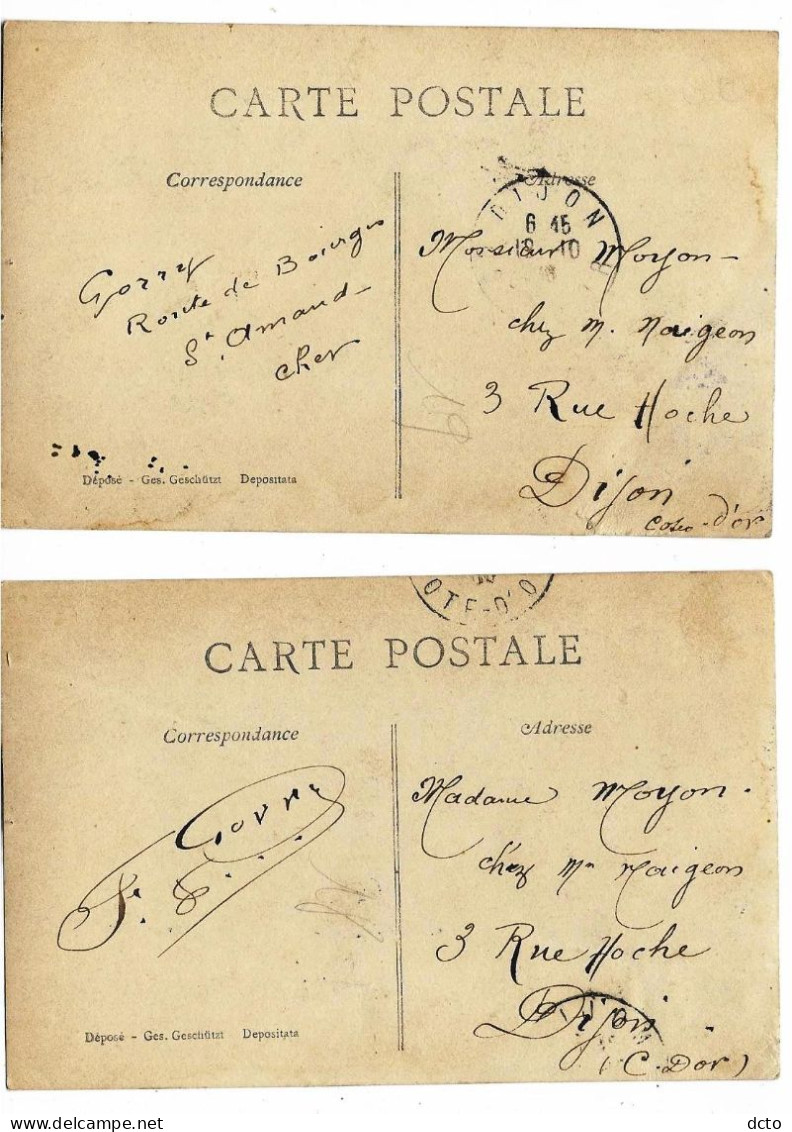 CARTE POSTALE
Correspondance
Adresse
DIJON
6 45
18 10
Gorry
Route de Bourges
St. Amand-
Cher
Monsieur Moyon-
chez M. Naigeon
3 Rue Hoche
Dijon
Cote-d'or
Déposé - Ges. Geschützt Depositata
OTE-D'O
CARTE POSTALE
Correspondance
Adresse
Gorry
Madame Moyon.
chez Mr Naigeon
3 Rue Hoche
Dijon
(C. Dor)
Déposé - Ges. Geschützt Depositata
dcto